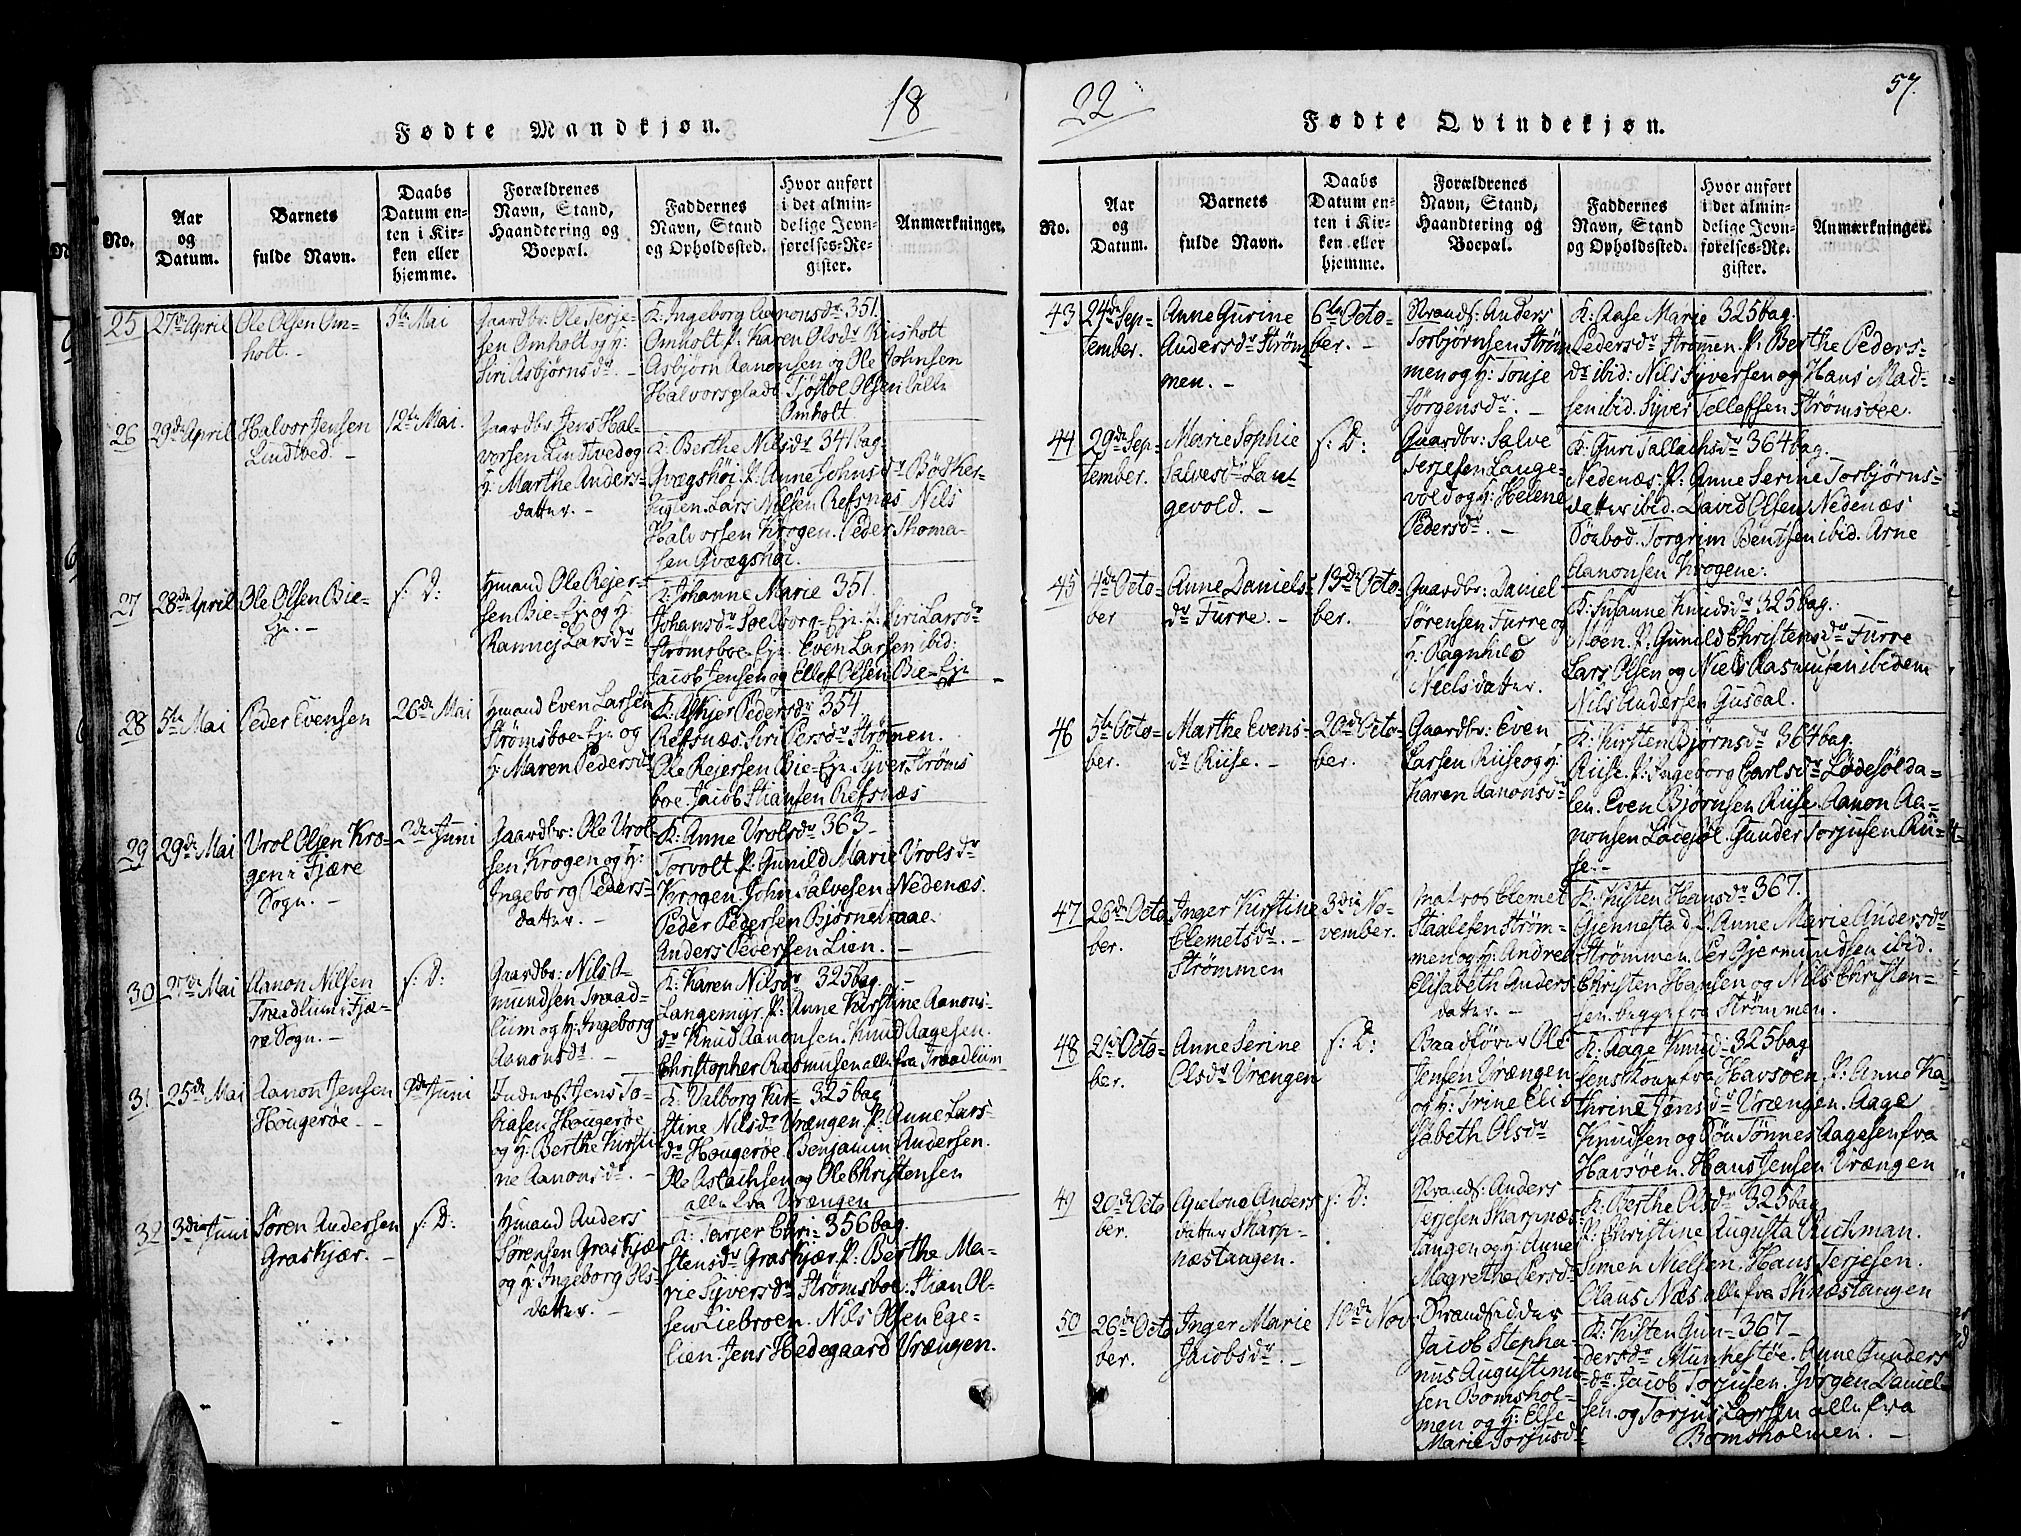 18
Fødte Mandkjøn.
No.
Aar
og
Datum.
Barnets
fulde Navn.
Daabs
Datum en-
ten i Kir-
ken eller
hjemme.
Forældrenes
Navn, Stand,
Haandtering og
Boepæl.
Faddernes
Navn, Stand
og Opholdssted.
Hvor anført
i det almin-
delige Jevn-
førelses-Re-
gister.
Anmærkninger.
25
27de April
Ole Olsen Om-
holt. -
5te Mai
Gaardbr: Ole Terje-
sen Omholt og H:
Siri Asbjørnsdr. -
K: Ingeborg Aanonsdr 351.
Omholt P: Karen Olsdr Riisholt
Asbjørn Aanonsen og Ole Johnsen
Halvorsplads Tostol Olsen Lille
Omholt
26
29de April
Halvor Jensen
Lindtved. -
12te Mai.
Gaardbr Jens Hal-
vorsen Lindtved og
H: Marthe Anders-
datter. -
K: Berthe Nilsdr 341 bag.
Gvagshøi. P: Anne Johnsdr Bøsker-
Lars Nilsen Refsnæs Nils
Halvorsen Krogen. Peder Thoma-
sen Gvagshøi.
27
28de April
Ole Olsen Bie-
Ejr. -
s: D:
Hmand Ole Rejer-
sen Bie-Ejr og H:
Larsdr
K: Johanne Marie 351.
Johansdr Solborg-Ejr. P: Siri Larsdr
Strømsboe-Ejr. Even Larsen ibid:
Jacob Jensen og Ellef Olsen Bie-Ejr
28
5te Mai
Peder Evensen
26de Mai
Hmand Even Larsen
Strømsboe-Ejr og
H: Maren Pedersdr
K: Pedersdr 354
Refsnæs. Siri Persdr Strømen.
Ole Rejersen Bie-Ejr. Syver Strøms
boe. Jacob Stiansen Refsnæs
29
29de Mai
Vrol Olsen Kro-
gen i Fjære
Sogn. -
2den Juni
Gaardbr: Ole Vrol-
sen Krogen og H:
Ingeborg Peders-
datter. -
K: Anne Vrolsdr 363 -
Torvolt P: Gunild Marie Vrolsdr
Krogen. John Salvesen Nedenæs.
Peder Pedersen Bjørnetraae.
Anders Pedersen Lien. -
30
Mai
Aanon Nilsen
Traadlium i Fjæ-
re Sogn. -
s: D:
Gaardbr: Nils A-
mundsen Traad-
lium og H: Ingeborg
Aanonsdr. -
K: Karen Nilsdr 325 bag. -
Langemyr. P: Anne Kirstine Aanons-
dr Knud Aanonsen. Knud Aagesen.
Christopher Rasmusen alle fra Traadlium
31
25de Mai
Aanon Jensen
Hougerøe -
Juni
Inderst Jens To-
biasen Hougerøe
og H: Berthe Kirsti-
ne Aanonsdr. -
K: Valborg Kir- 325 bag
stine Nilsdr Vrængen. P: Anne Lars-
dr Hougerøe. Benjamin Andersen.
Ole Aslachsen og Ole Christensen
alle fra Vrængen
32
3die Juni
Søren Andersen
Graskjær. -
s: D:
Hmand Anders
Sørensen Graskjær
og H: Ingeborg Ols-
datter. -
K: Tarjer Chri- 356 bag.
stensdr Graskjær. P: Berthe Ma-
rie Syversdr Strømsboe. Stian Ol-
sen Liebroen. Nils Olsen Ege-
lien. Jens Hedegaard Vrængen.
22
57.
Fødte Qvindekjøn.
No.
Aar
og
Datum.
Barnets
fulde Navn.
Daabs
Datum en-
ten i Kir-
ken eller
hjemme.
Forældrenes
Navn, Stand,
Haandtering og
Boepæl.
Faddernes
Navn, Stand
og Opholdssted.
Hvor anført
i det almin-
delige Jevn-
førelses-Re-
gister.
Anmærkninger.
43
24de Sep-
tember.
Anne Gurine
Andersdr Strøm-
men. -
6te Octo-
ber. -
Strands: Anders
Torbjørnsen Strøm
men og H: Tonje
Jørgensdr. -
K: Aase Marie 325 bag.
Pedersdr Strømmen. P: Berthe Peders-
dr ibid: Nils Syversen og Hans Mad-
sen ibid. Syver Tellefsen Strømsboe.
44
29de Sep-
tember.
Marie Sophie
Salvesdr Lan-
gevold. -
s: D:
Gaardbr: Salve
Terjesen Lange-
vold og H: Helene
Pedersdr. -
K: Guri Tallachsdr 364 bag.
Nedenæs. P: Anne Serine Torbjørns-
datter ibid. David Olsen Nedenæs
Torgrim Bentsen ibid. Arne
Aanonsen Krogene.
45
4de Octo-
ber
Anne Daniels-
dr Furre. -
13de Octo-
ber.
Gaardbr: Daniel
Sørensen Furre og
H: Ragnhild
Nielsdatter.
K: Susanne Knudsdr 325 bag.
Moen. P: Gunild Christensdr Furre
Lars Olsen og Niels Rasmusen ibidem
Nils Andersen Gusdal.
46
5te Octo-
ber.
Marthe Evens-
dr Riise. -
20de Octo-
ber.
Gaardbr: Even
Larsen Riise og H:
Karen Aanonsdr
K: Kirsten Bjørnsdr 364 bag.
Riise. P: Ingeborg Carlsdr Lødesølda-
len. Even Bjørnsen Riise. Aanon Aa-
nonsen Løddesøl. Gunder Torjusen Rii-
se. -
47
26de Octo
ber.
Inger Kirstine
Clemetsdr. -
Strømmen
3die No-
vember.
Matros Clemet
Staalesen Strøm-
men og H: Andrea
Elisabeth Anders
datter. -
K: Kisten Hansdr 367.
Gjennestad. P: Anne Marie Andersdr
Strømmen. Per Gjermundsen ibid.
Christen Hansen og Nils Christen-
sen begge fra Strømmen.
48
21de Octo-
ber.
Anne Serine
Olsdr Vrængen
s: D:
Baadfører Ole
Jensen Vrængen
og H: Trine Eli-
sabeth Olsdr
K: Aage Knud- 325 bag
sens Kone fra Havsøen. P: Anne Ka-
thrine Jansdr Vrængen. Aage
Knudsen og Søn Tønnes Aagesen fra
Havsøen. Hans Jensen Vrængen
49
20de Octo
ber.
Anders
datter Skarp-
næstangen.
s: D:
Strands: Anders
Terjesen Skarpnæs-
tangen og H: Anne
Magrethe Persdr
K: Berthe Olsdr 325 bag
P: Christine Augusta Richman.
Simen Nielsen. Hans Terjesen.
Claus Næs alle fra Sknæstangen
50
26de Octo
ber.
Inger Marie
Jacobsdr. -
10de Nov-
Strandsidder
Jacob Stepha-
nus Augustinu-
sen Bomshol-
men og H: Else
Marie Torjusdr
K: Kisten Gun- 367 -
dersdr Munkestøe. Anne Gunders
dr. Jacob Torjusen. Jørgen Daniel-
sen. og Torjus Larsen alle fra
Bomsholmen. -